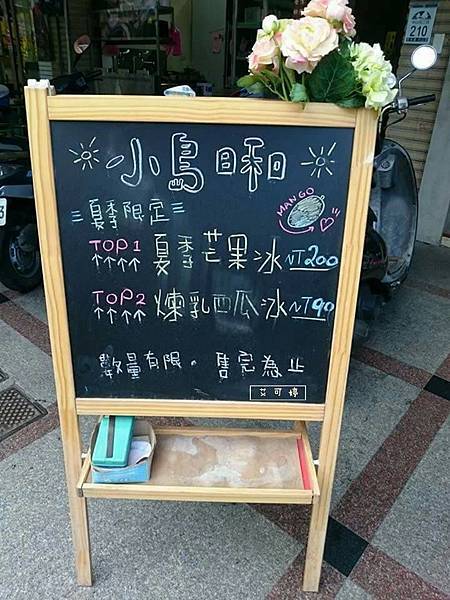 210
小島日和
夏季限定
MANGO
TOP1 夏季芒果冰 NT200
TOP2 煉乳西瓜冰 NT90
數量有限。售完為止
艾可婷
3